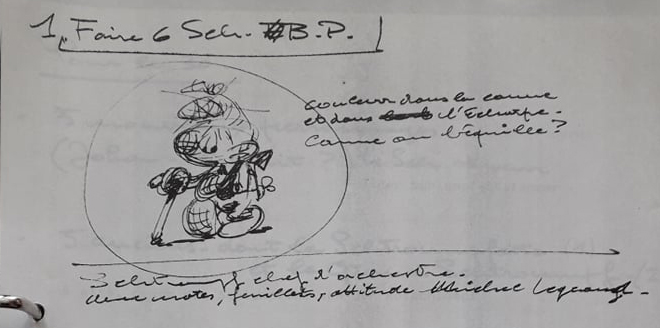 1. Faire 6 Sch. B.P.
couleur dans la canne
et dans l'Echarpe.
Canne ou béquille?
Schtroumpf chef d'orchestre.
deux notes, feuillets, attitude Michel Legrand.